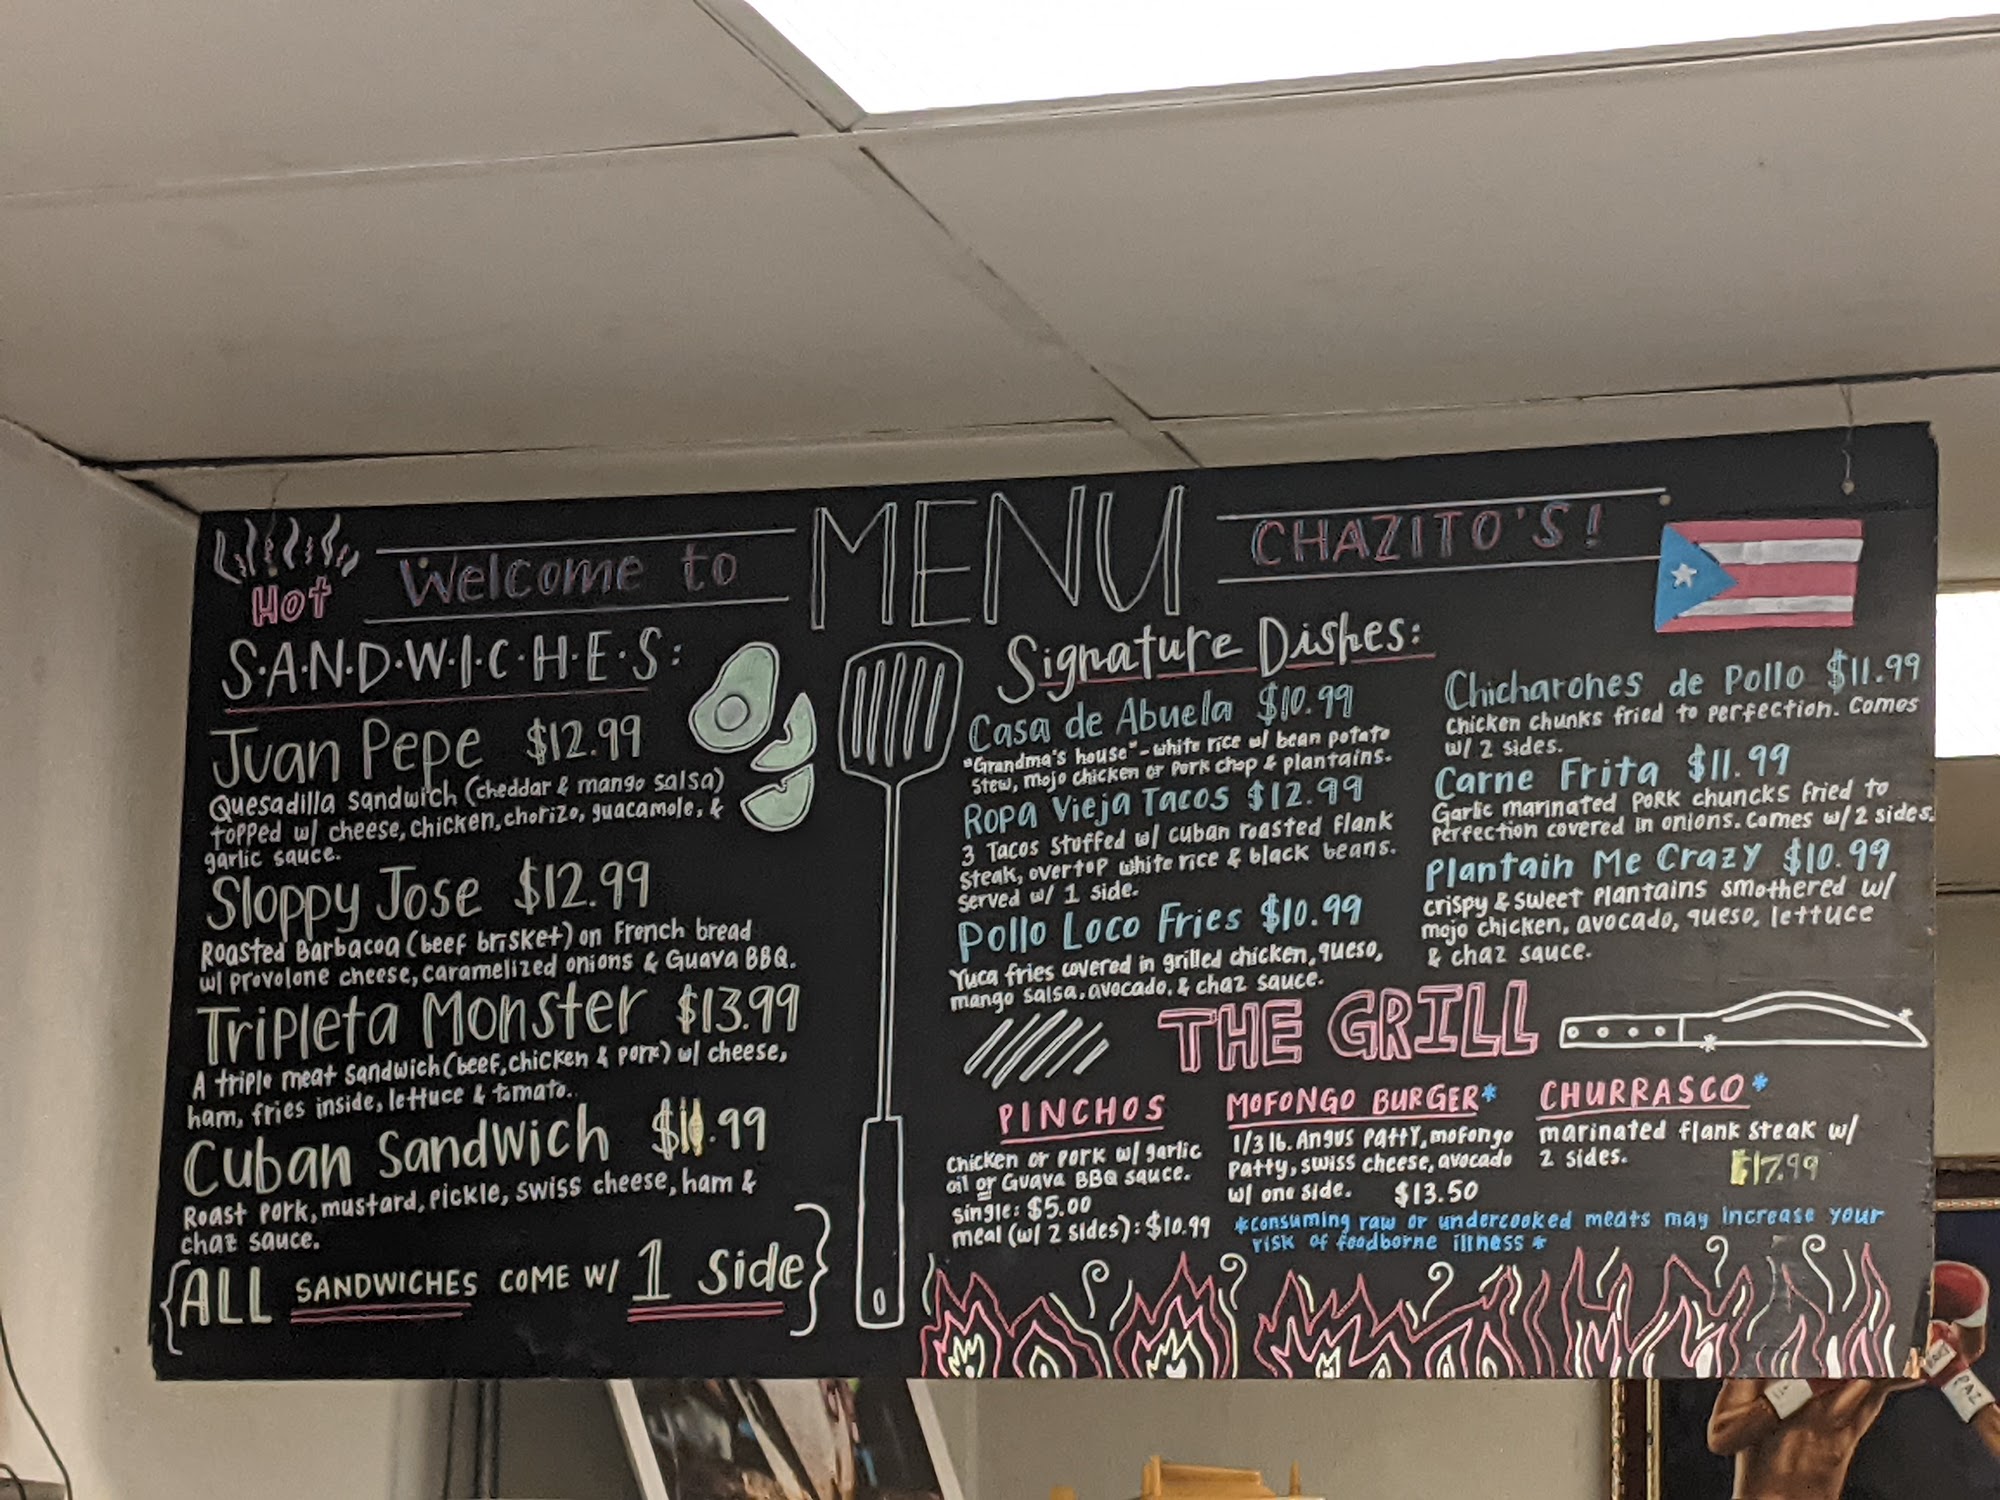 Welcome to MENU CHAZITO'S!
Hot
S·A·N·D·W·I·C·H·E·S:
Juan Pepe $12.99
Quesadilla sandwich (cheddar & mango salsa)
topped w/ cheese, chicken, chorizo, guacamole, &
garlic sauce.
Sloppy Jose $12.99
Roasted Barbacoa (beef brisket) on French bread
w/ provolone cheese, caramelized onions & Guava BBQ.
Tripleta Monster $13.99
A triple meat sandwich (beef, chicken & pork) w/ cheese,
ham, fries inside, lettuce & tomato.
Cuban Sandwich .99
Roast pork, mustard, pickle, swiss cheese, ham &
chaz sauce.
{ALL SANDWICHES COME W/ 1 side}
Signature Dishes:
Casa de Abuela $10.99
"Grandma's house" - white rice w/ bean potato
stew, mojo chicken or pork chop & plantains.
Ropa Vieja Tacos $12.99
3 Tacos stuffed w/ cuban roasted flank
steak, overtop white rice & black beans.
served w/ 1 side.
Pollo Loco Fries $10.99
Yuca fries covered in grilled chicken, queso,
mango salsa, avocado, & chaz sauce.
Chicharones de Pollo $11.99
Chicken chunks fried to perfection. Comes
w/ 2 sides.
Carne Frita $11.99
Garlic marinated pork chuncks fried to
perfection covered in onions. Comes w/ 2 sides.
Plantain Me Crazy $10.99
crispy & sweet plantains smothered w/
mojo chicken, avocado, queso, lettuce
& chaz sauce.
THE GRILL
PINCHOS
Chicken or pork w/ garlic
oil or Guava BBQ sauce.
single: $5.00
meal (w/ 2 sides): $10.99
MOFONGO BURGER*
1/3 lb. Angus patty, mofongo
patty, swiss cheese, avocado
w/ one side. $13.50
CHURRASCO*
marinated flank steak w/
2 sides.
$17.99
*consuming raw or undercooked meats may increase your
risk of foodborne illness*
PAZ